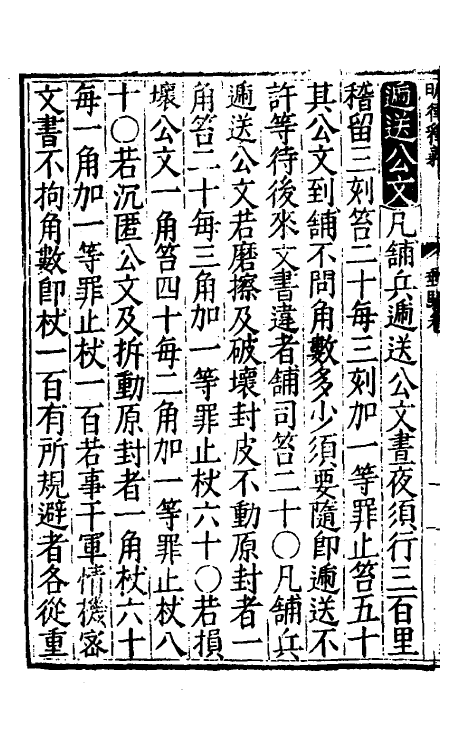 遞送公文凡舖兵遞送公文晝夜須行三百里
稽留三刻笞二十每三刻加一等罪止笞五十
其公文到舖不問角數多少須要隨即遞送不
許等待後來文書違者舖司笞二十〇凡舖兵
遞送公文若磨擦及破壞封皮不動原封者一
角笞二十每三角加一等罪止杖六十〇若損
壞公文一角笞四十每二角加一等罪止杖八
十〇若沉匿公文及拆動原封者一角杖六十
每一角加一等罪止杖一百若事干軍情機密
文書不拘角數即杖一百有所規避者各從重